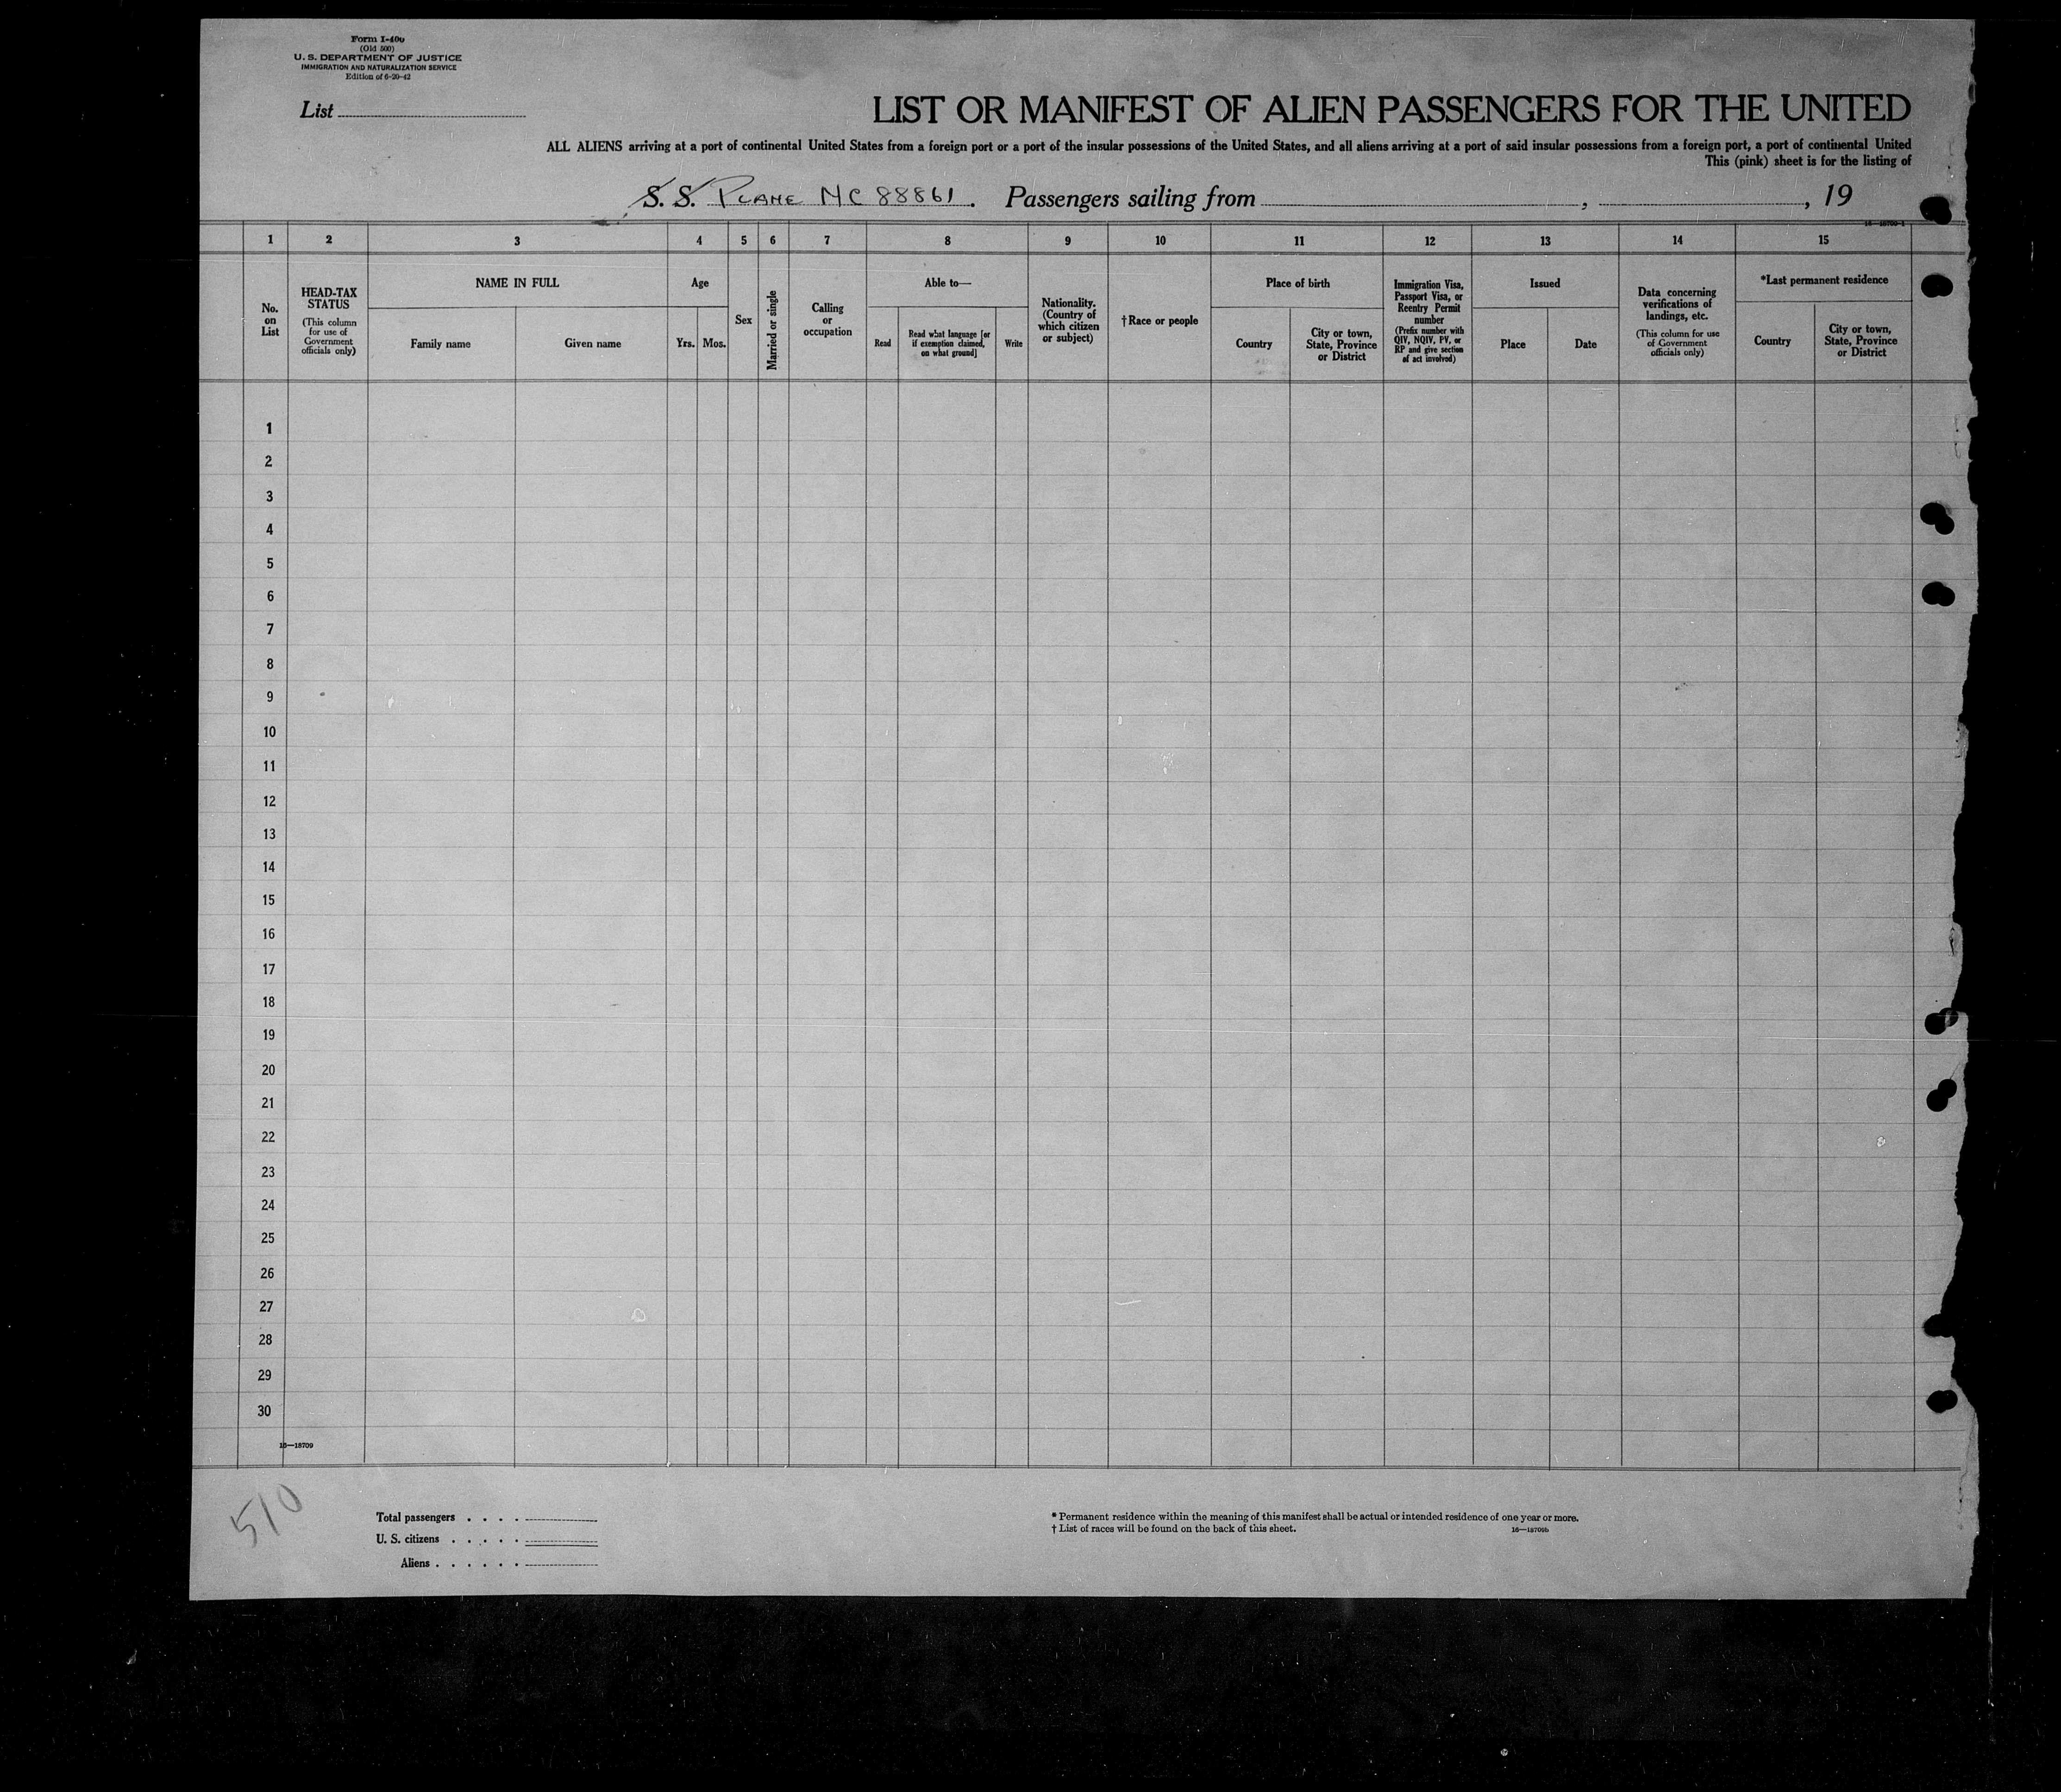 Form I-400
(Old 500)
U. S. DEPARTMENT OF JUSTICE
IMMIGRATION AND NATURALIZATION SERVICE
Edition of 6-20-42
List
LIST OR MANIFEST OF ALIEN PASSENGERS FOR THE UNITED
ALL ALIENS arriving at a port of continental United States from a foreign port or a port of the insular possessions of the United States, and all aliens arriving at a port of said insular possessions from a foreign port, a port of continental United
This (pink) sheet is for the listing of
S. S. PLANE NC 88861. Passengers sailing from , , 19
16—18709-1
1 2 3 4 5 6 7 8 9 10 11 12 13 14 15
No. on List
HEAD-TAX STATUS
(This column for use of Government officials only)
NAME IN FULL
Family name
Given name
Age
Yrs.
Mos.
Sex
Married or single
Calling or occupation
Able to—
Read
Read what language [or if exemption claimed, on what ground]
Write
Nationality. (Country of which citizen or subject)
†Race or people
Place of birth
Country
City or town, State, Province or District
Immigration Visa, Passport Visa, or Reentry Permit number
(Prefix number with QIV, NQIV, PV, or RP and give section of act involved)
Issued
Place
Date
Data concerning verifications of landings, etc.
(This column for use of Government officials only)
*Last permanent residence
Country
City or town, State, Province or District
1
2
3
4
5
6
7
8
9
10
11
12
13
14
15
16
17
18
19
20
21
22
23
24
25
26
27
28
29
30
16—18709
510
Total passengers . . . .
U. S. citizens . . . . .
Aliens . . . . . .
* Permanent residence within the meaning of this manifest shall be actual or intended residence of one year or more.
† List of races will be found on the back of this sheet.
16—18709b